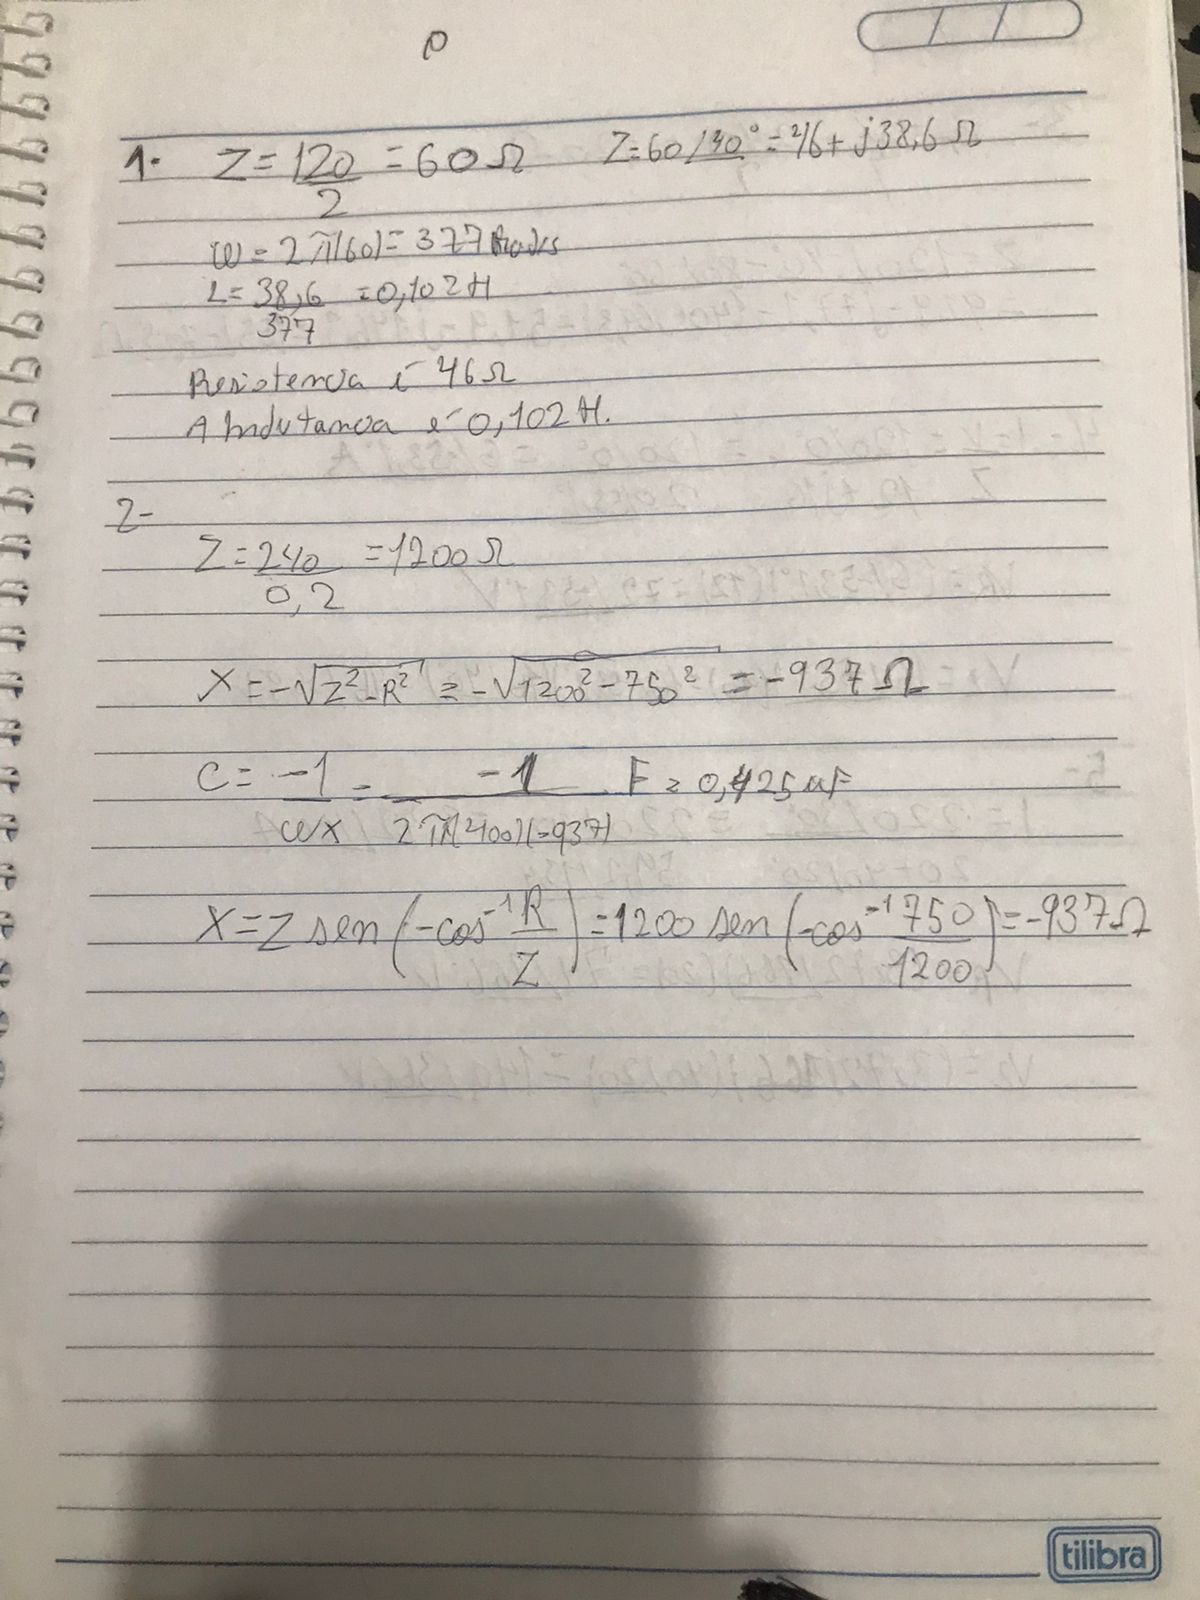 1. Z = 120/2 = 60 Ω   Z = 60 /40° = 46 + j38,6 Ω
W = 2π(60) = 377 rad/s
L = 38,6/377 = 0,102 H
Resistencia é 46 Ω
A Indutancia é 0,102 H.
2-
Z = 240/0,2 = 1200 Ω
X = -√Z² - R² = -√1200² - 750² = -937 Ω
C = -1/wx = -1/2π(400)(-937) F = 0,425 uF
X = Z sen (-cos⁻¹ R/Z) = 1200 sen (-cos⁻¹ 750/1200) = -937 Ω
tilibra